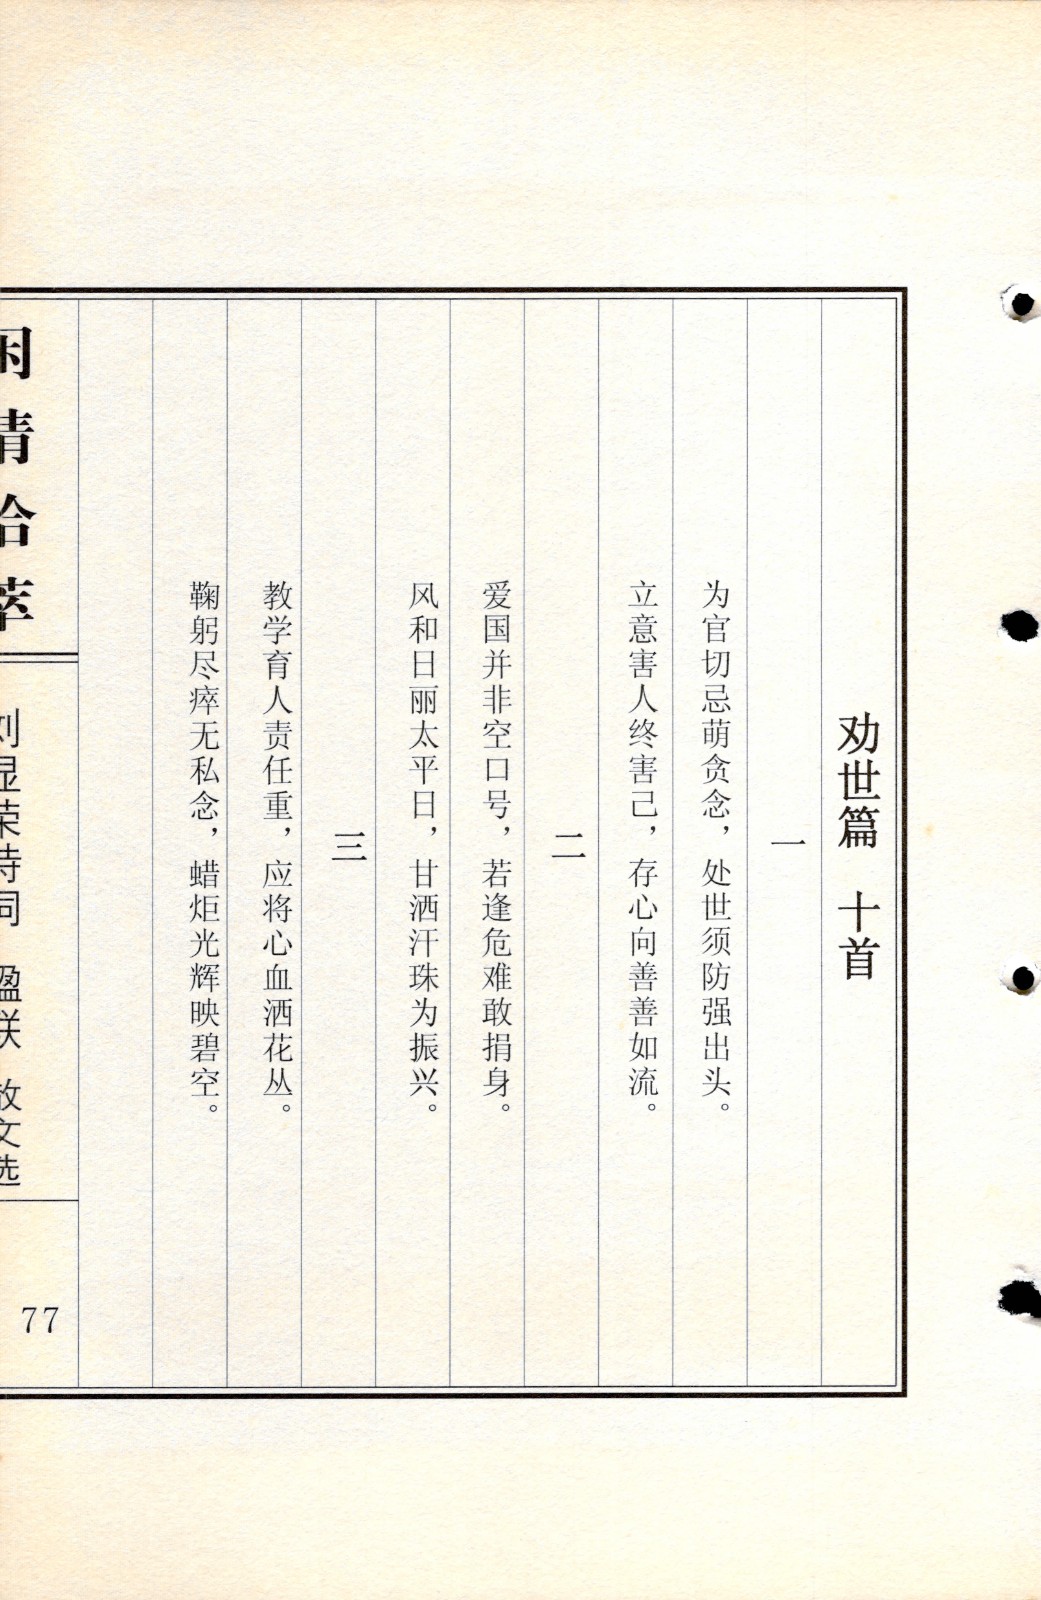 劝世篇　十首
一
为官切忌萌贪念，处世须防强出头。
立意害人终害己，存心向善善如流。
二
爱国并非空口号，若逢危难敢捐身。
风和日丽太平日，甘洒汗珠为振兴。
三
教学育人责任重，应将心血洒花丛。
鞠躬尽瘁无私念，蜡炬光辉映碧空。
情拾萃
刘显荣诗词　楹联　散文选
77